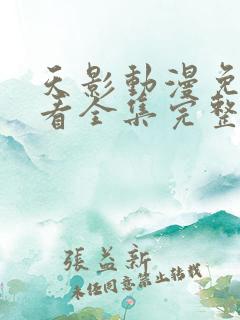 天影動漫免
看全集完整
張益新
未經同意禁止轉載